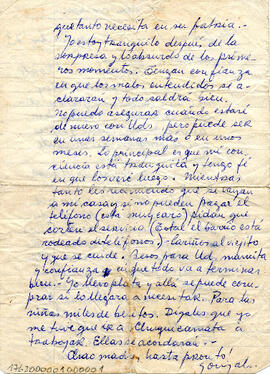 que tanto necesita en su patria.-
Yo estoy tranquilo después de la
sorpresa y lo absurdo de los prime-
ros momentos. Tengan confianza
en que los malos entendidos se a-
clararán y todo saldrá bien.
No puedo asegurar cuando estaré
de nuevo con Uds. pero puede ser
en unas semanas más o en unos
meses. Lo principal es que mi con-
ciencia está tranquila y tengo fé
en que los veré luego. Mientras
tanto les recomiendo que se vayan
a mi casa y si no pueden pagar el
teléfono (está muy caro) pidan que
corten el servicio (Total el barrio está
rodeado de teléfonos).- Cariños al viejito
y que se cuide. Besos para Ud, mamita
y confianza en que todo va a terminar
bien.- Yo llevo plata y allá se puede com-
prar si lo llegara a necesitar. Para las
niñas miles de besitos. Dígales que yo
me tuve que ir a Chuquicamata a
trabajar. Ellas se acordarán.-
Chao madre, hasta pronto!
Gonzalo
176-200000100000 1